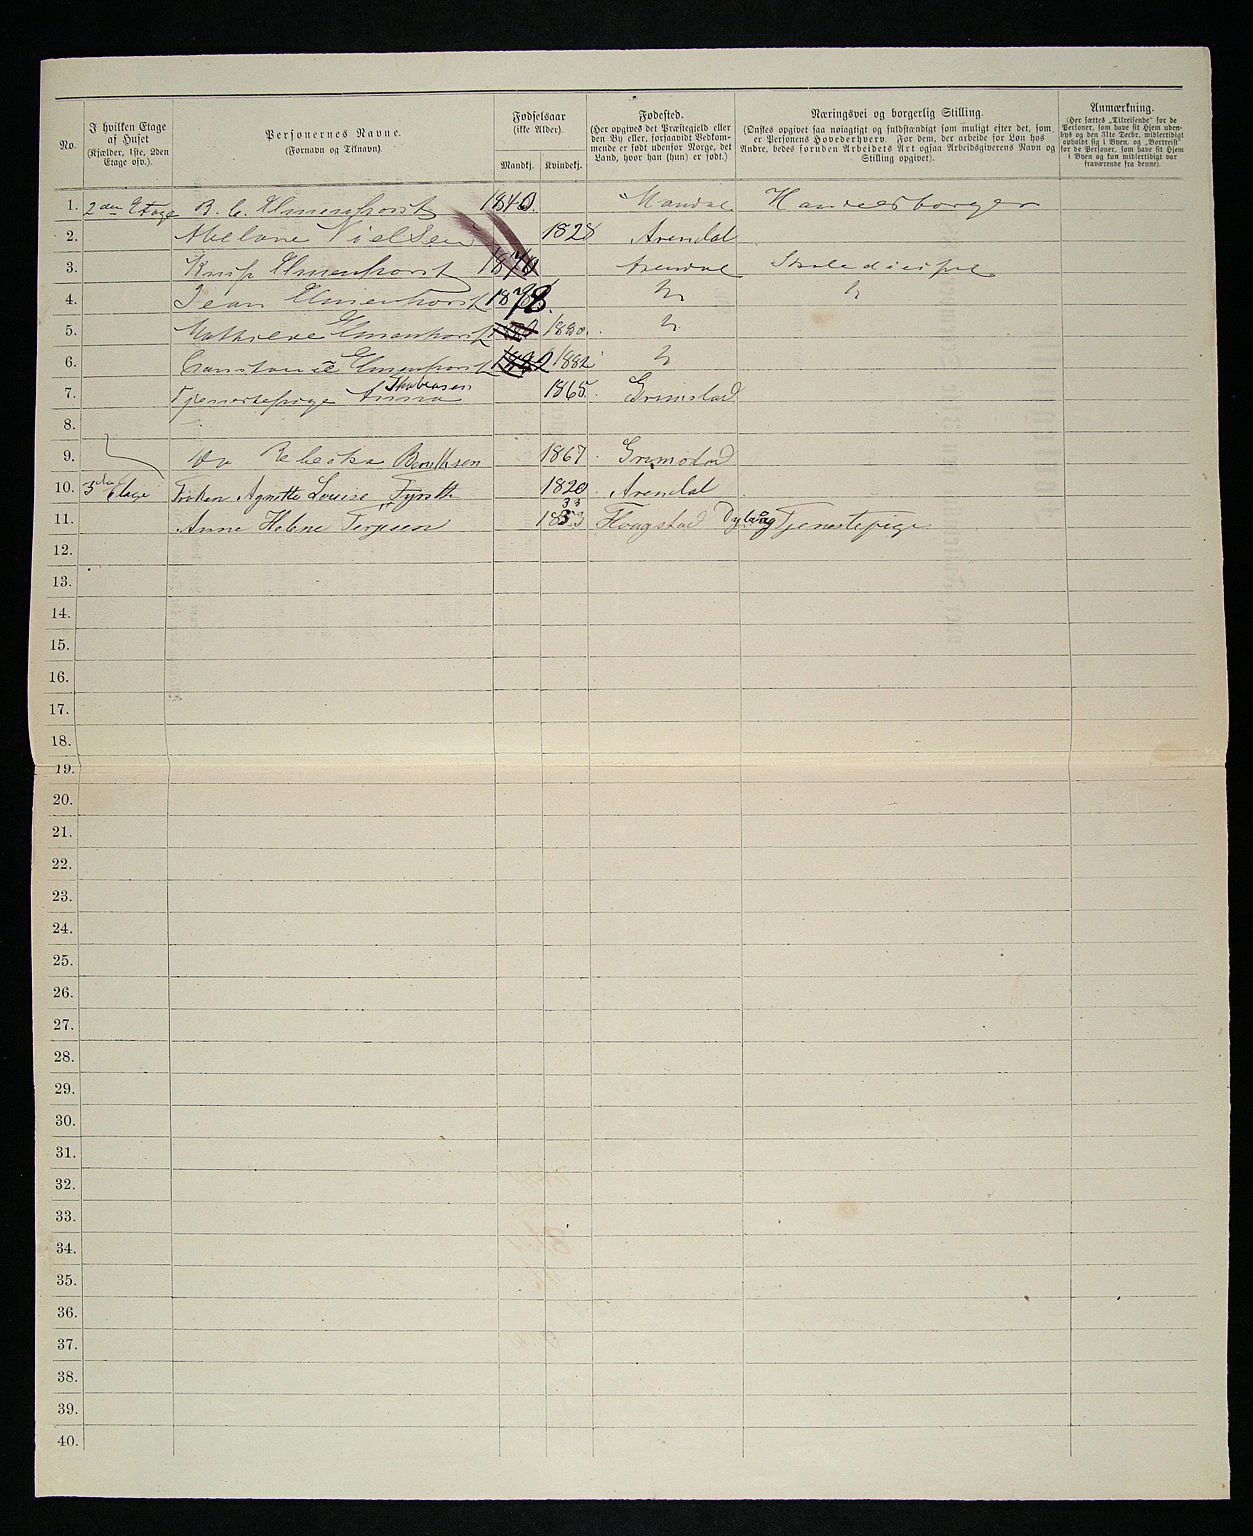 No.
I hvilken Etage af Huset (Kjælder, 1ste, 2den Etage osv.).
Personernes Navne. (Fornavn og Tilnavn).
Fødselsaar (ikke Alder).
Mandkj. Kvindekj.
Fødested. (Her opgives det Præstegjeld eller den By eller, forsaavidt Vedkommende er født udenfor Norge, det Land, hvor han (hun) er født.)
Næringsvei og borgerlig Stilling. (Ønskes opgivet saa nøiagtigt og fuldstændigt som muligt efter det, som er Personens Hovederhverv. For dem, der arbeide for Løn hos Andre, bedes foruden Arbeidets Art ogsaa Arbeidsgiverens Navn og Stilling opgivet).
Anmærkning. (Her sættes „Tilreisende" for de Personer, som have sit Hjem udenbys og den 31te Decbr. midlertidigt opholdt sig i Byen, og „Bortreist" for de Personer, som have sit Hjem i Byen og kun midlertidigt var fraværende fra denne).
1. 2den Etage B. C. Elmenhorst 1840. Mandal Handelsborger
2. Nielsen 1828 Arendal
3. Elmenhorst 1876 Arendal Skolediscipel
4. Jean Elmenhorst 1878.
5. Mathilde Elmenhorst 1880.
6. Constance Elmenhorst 1882
7. Tjenestepige Anna 1865. Grimstad
8.
9. Do Rebekka Bentksen 1867. Grimstad
10. 3die Etage Frøken Agnethe Louise Fürst 1820. Arendal
11. Anne Helene Terjesen 1833 Flougstad Dybvåg Tjenestepige
12.
13.
14.
15.
16.
17.
18.
19.
20.
21.
22.
23.
24.
25.
26.
27.
28.
29.
30.
31.
32.
33.
34.
35.
36.
37.
38.
39.
40.